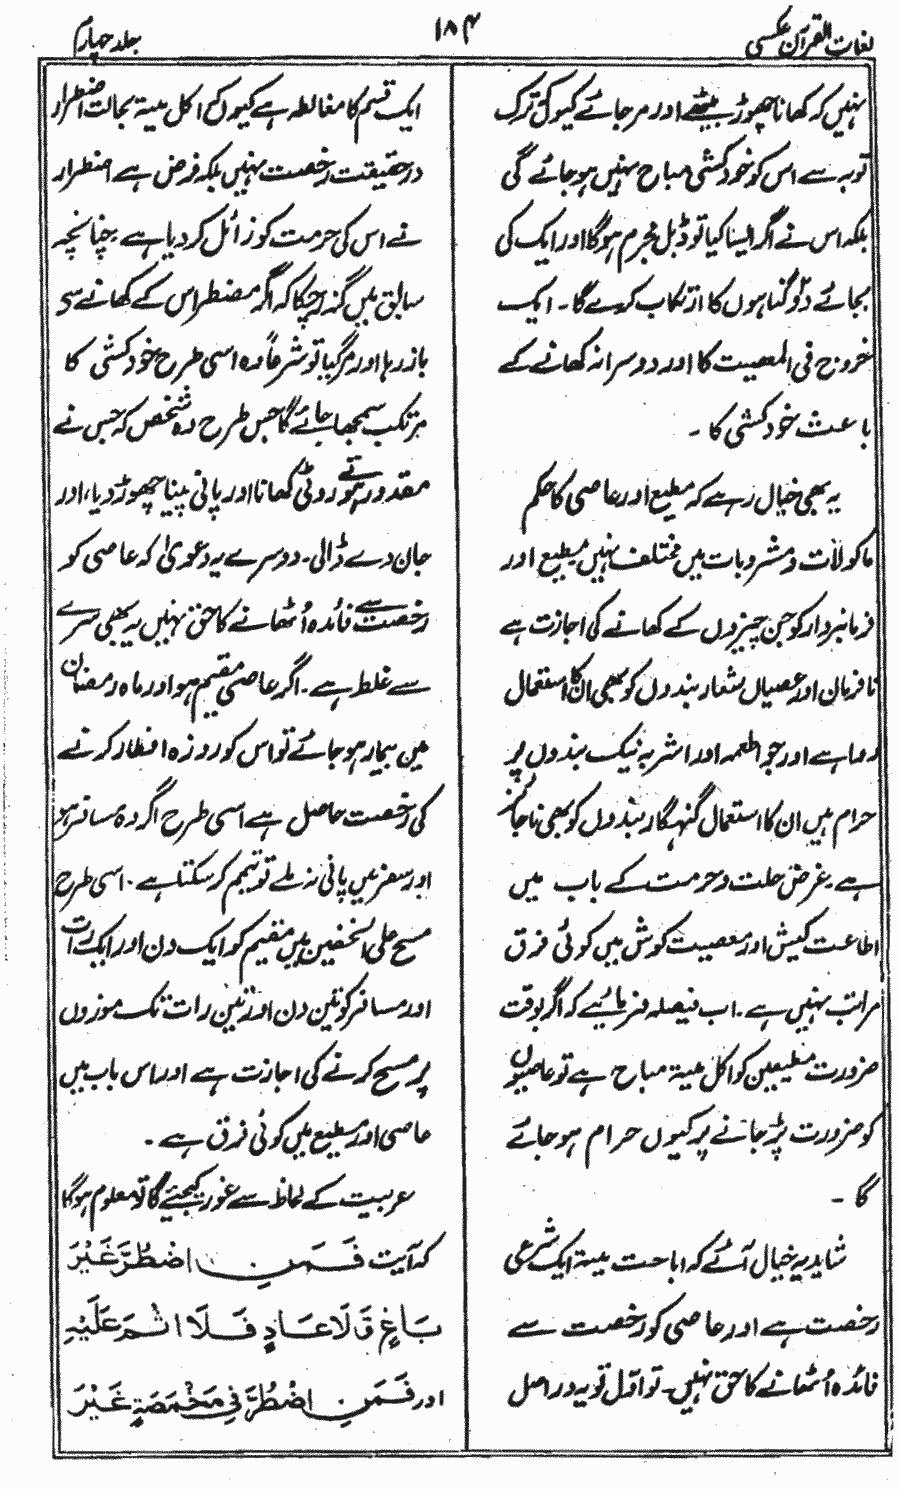 لغات القرآن عکسی
۱۸۴
جلد چہارم
نہیں کہ کھانا چھوڑ بیٹھے اور مرجائے کیوں کہ ترک
توبہ سے اس کو خودکشی مباح نہیں ہوجائے گی
بلکہ اس نے اگر ایسا کیا تو ڈبل مجرم ہوگا اور ایک کی
بجائے دو گناہوں کا ارتکاب کرے گا۔ ایک
خروج فی المعصیت کا اور دوسرا نہ کھانے کے
باعث خودکشی کا ۔
یہ بھی خیال رہے کہ مطیع اور عاصی کا حکم
ماکولات و مشروبات میں مختلف نہیں مطیع اور
فرمانبردار کو جن چیزوں کے کھانے کی اجازت ہے
نافرمان اور عصیاں شعار بندوں کو بھی ان کا استعمال
روا ہے اور جو اطعمہ اور اشربہ نیک بندوں پر
حرام ہیں ان کا استعمال گنہگار بندوں کو بھی ناجائز
ہے۔ غرض حلت و حرمت کے باب میں
اطاعت کیش اور معصیت کوش میں کوئی فرق
مراتب نہیں ہے۔ اب فیصلہ فرمائیے کہ اگر بوقت
ضرورت مطیعین کو اکل میتۃ مباح ہے تو عاصیوں
کو ضرورت پڑجانے پر کیوں حرام ہوجائے
گا ۔
شاید یہ خیال آئے کہ اباحت میتۃ ایک شرعی
رخصت ہے اور عاصی کو رخصت سے
فائدہ اُٹھانے کا حق نہیں۔ تو اوّل تو یہ دراصل
ایک قسم کا مغالطہ ہے کیوں کہ اکل میتۃ بحالت اضطرار
درحقیقت رخصت نہیں بلکہ فرض ہے اضطرار
نے اس کی حرمت کو زائل کردیا ہے چنانچہ
سابق میں گذر چکا کہ اگر مضطر اس کے کھانے سے
باز رہا اور مرگیا تو شرعاً وہ اسی طرح خودکشی کا
مرتکب سمجھا جائے گا جس طرح وہ شخص کہ جس نے
مقدور ہوتے روٹی کھانا اور پانی پینا چھوڑ دیا، اور
جان دے ڈالی۔ دوسرے یہ دعویٰ کہ عاصی کو
رخصت سے فائدہ اُٹھانے کا حق نہیں یہ بھی سرے
سے غلط ہے۔ اگر عاصی مقیم ہو اور ماہ رمضان
میں بیمار ہوجائے تو اس کو روزہ افطار کرنے
کی رخصت حاصل ہے اسی طرح اگر وہ مسافر ہو
اور سفر میں پانی نہ ملے تو تیمم کرسکتا ہے۔ اسی طرح
مسح علی الخفین میں مقیم کو ایک دن اور ایک رات
اور مسافر کو تین دن اور تین رات تک موزوں
پر مسح کرنے کی اجازت ہے اور اس باب میں
عاصی اور مطیع میں کوئی فرق ہے ۔
عربیت کے لحاظ سے غور کیجئے گا تو معلوم ہوگا
کہ آیت فَمَنِ اضْطُرَّ غَيْرَ
بَاغٍ وَّلَا عَادٍ فَلَا اثْمَ عَلَيْهِ
اور فَمَنِ اضْطُرَّ فِي مَخْمَصَةٍ غَيْرَ